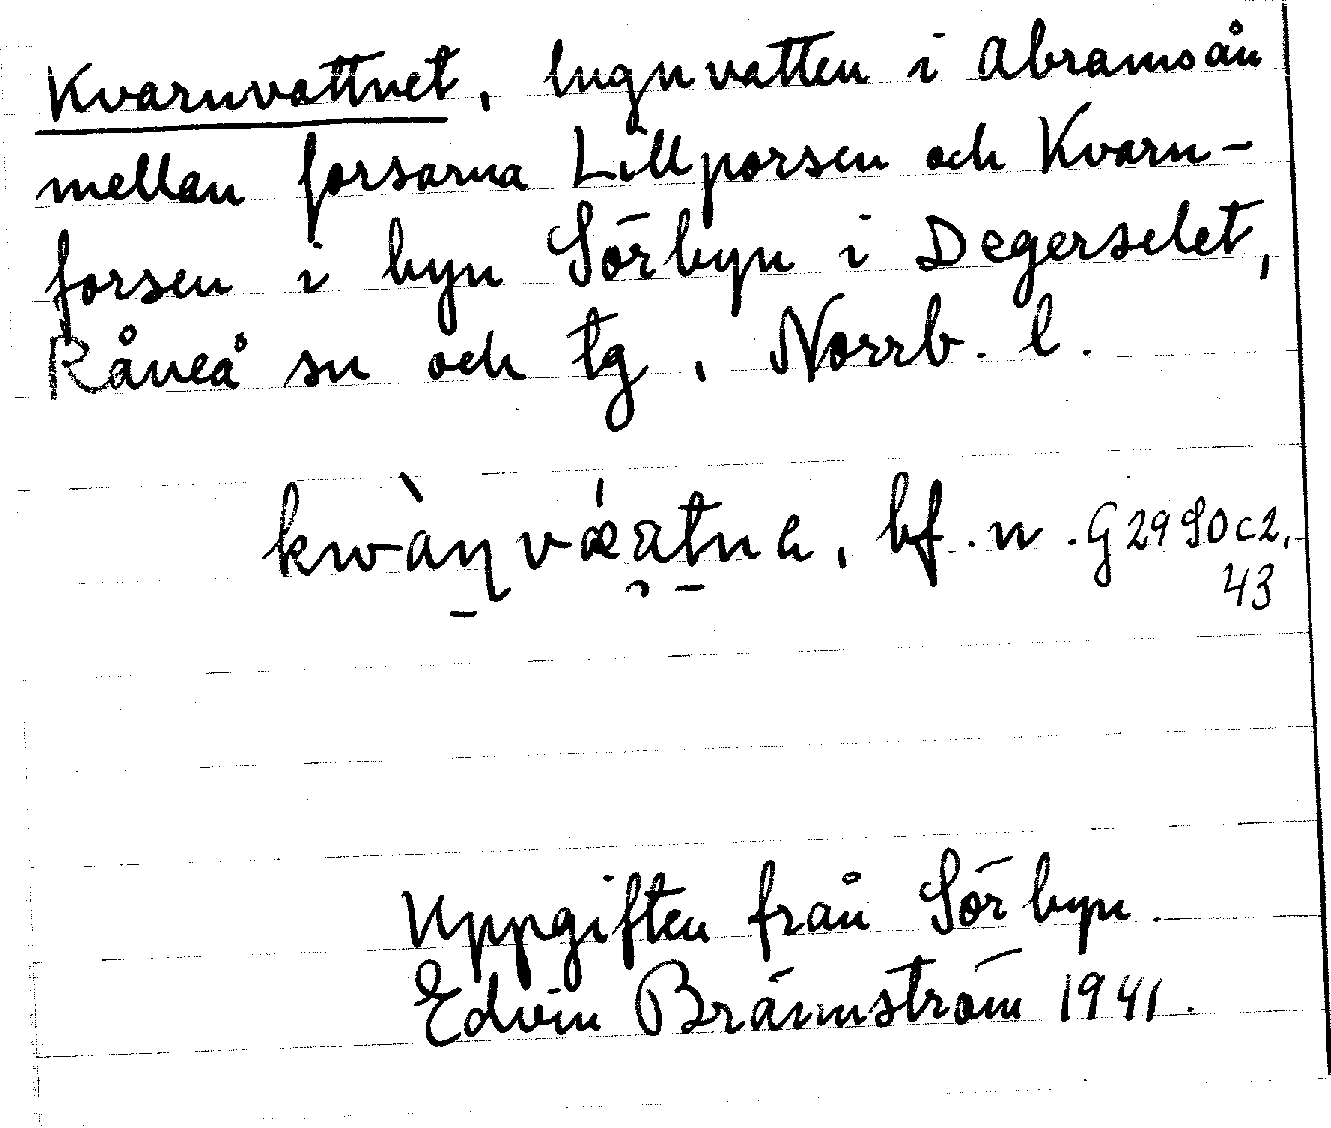 Kvarnvattnet, lugnvatten i Abramsån
mellan forsarna Lillporsen och Kvarn-
forsen i byn Sörbyn i Degerselet,
Råneå sn och tg, Norrb. l.
bf. n. G 29 SO c 2,
43
Uppgiften från Sörbyn.
Edvin Brännström 1941.